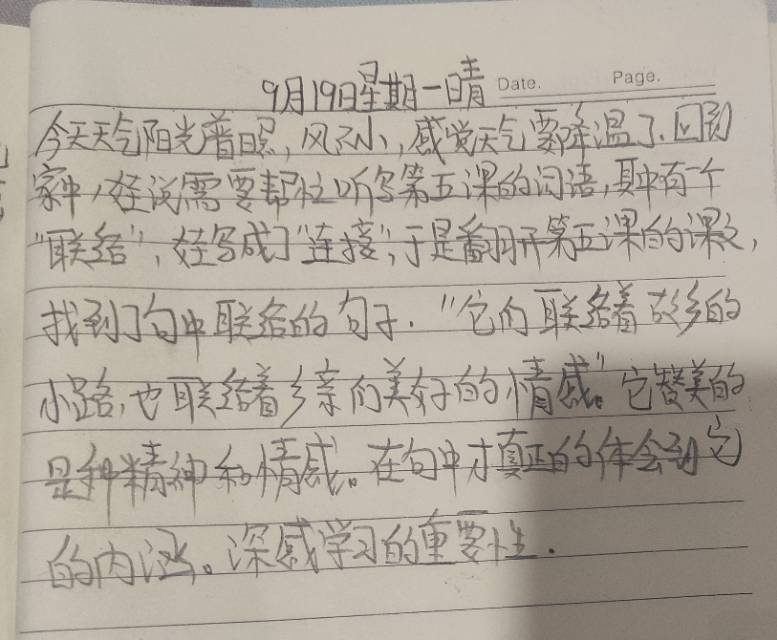 9月19日星期一晴 Date. Page.
今天天气阳光普照,风不小,感觉天气要降温了.回到
家中,娃说需要帮忙听写第五课的词语,其中有一个
"联结",娃写成了"连接",于是翻开第五课的课文,
找到了句中联结的句子."它们联结着故乡的
小路,也联结着乡亲们美好的情感。"它赞美的
是种精神和情感。在句中才真正的体会到它
的内涵。深感学习的重要性.